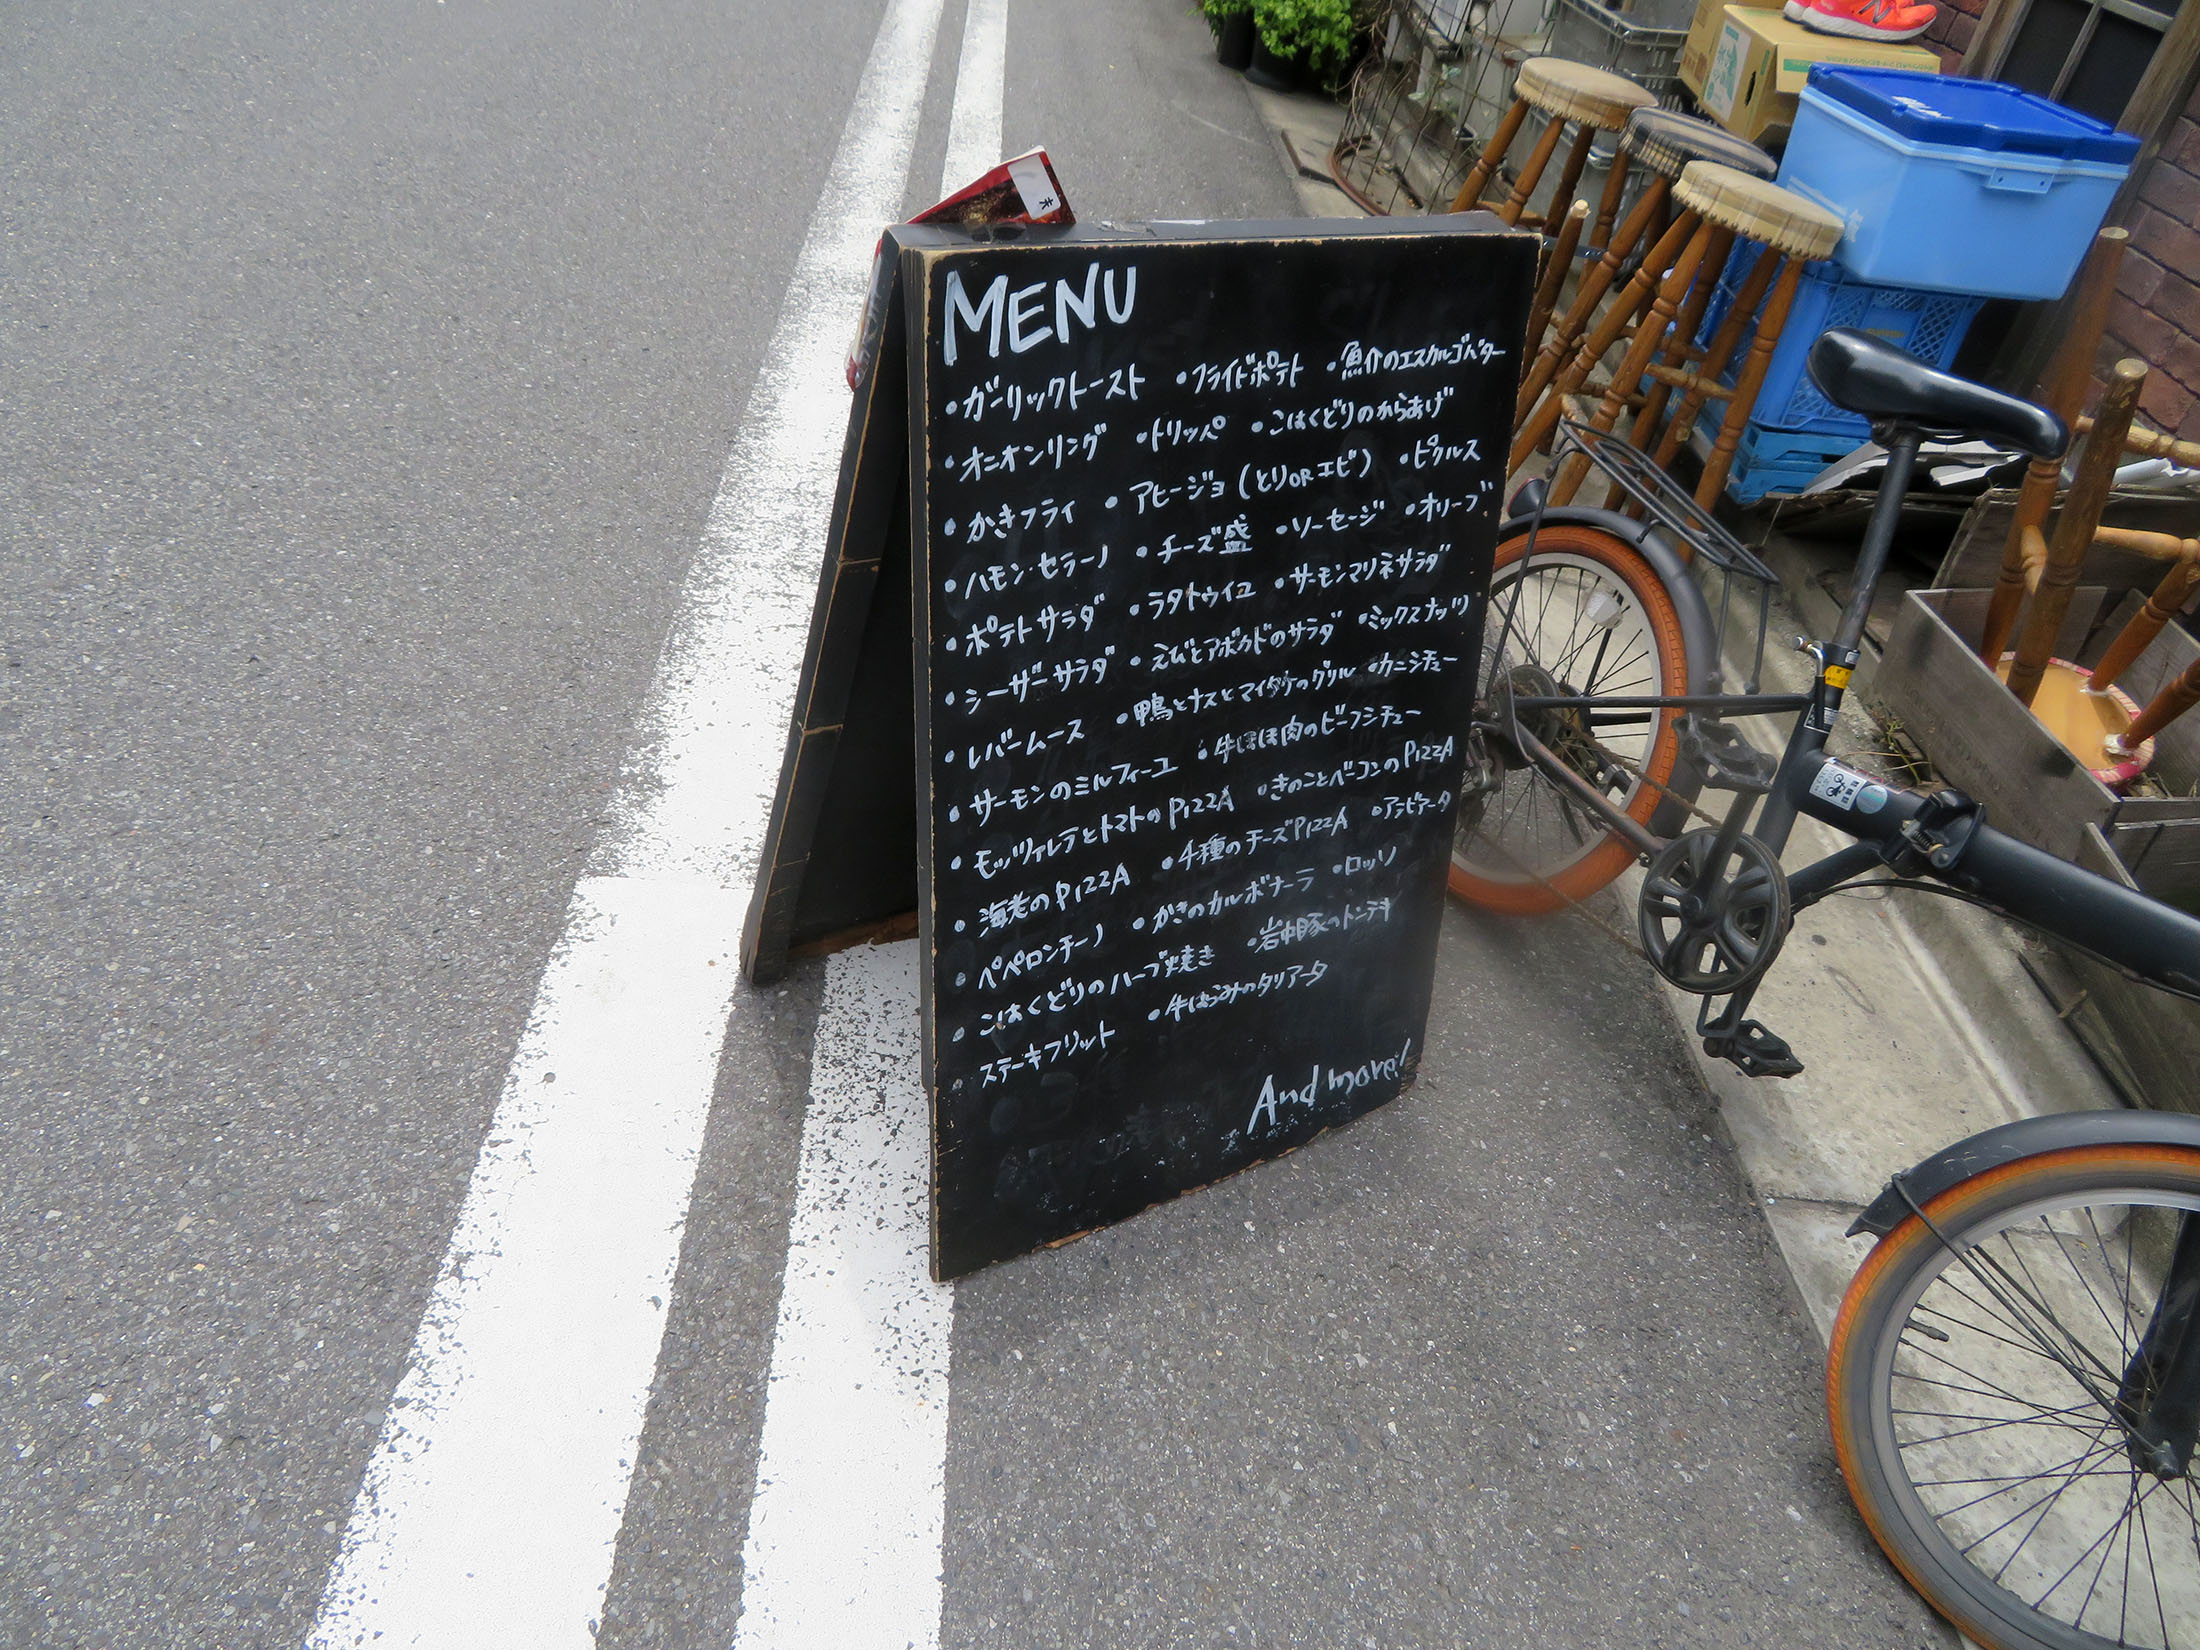 MENU
・ガーリックトースト ・フライドポテト ・魚介のエスカルゴバター
・オニオンリング ・トリッパ ・こはくどりのからあげ
・かきフライ ・アヒージョ(とりORエビ) ・ピクルス
・ハモン・セラーノ ・チーズ盛 ・ソーセージ ・オリーブ
・ポテトサラダ ・ラタトゥイユ ・サーモンマリネサラダ
・シーザーサラダ ・えびとアボカドのサラダ ・ミックスナッツ
・レバームース ・鴨とナスとマイタケのグリル ・カニシチュー
・サーモンのミルフィーユ ・牛ほほ肉のビーフシチュー
・モッツァレラとトマトのPIZZA ・きのことベーコンのPIZZA
・海老のPIZZA ・4種のチーズPIZZA ・アラビアータ
・ペペロンチーノ ・かきのカルボナーラ ・ロッソ
・こはくどりのハーブ焼き ・岩中豚のトンテキ
・ステーキフリット ・牛はらみのタリアータ
And more!